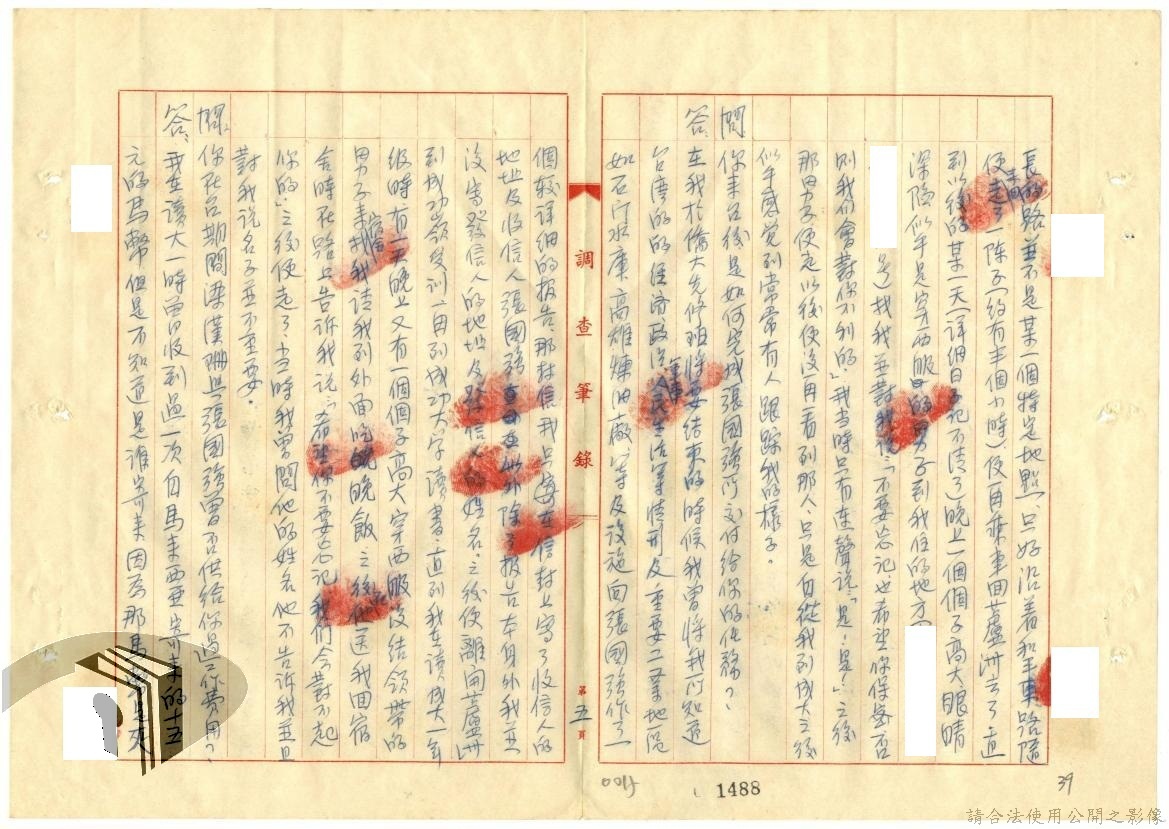 長的路並不是某一個特定地點、只好沿着和平東路隨
便走了一陣子(約有半個小時)便再乘車回蘆洲去了直
到以後的某一天(詳細日子記不清了)晚上一個個子高大眼睛
深陷似乎是穿西服的男子到我住的地方
是)找我並對我說:「不要忘記也希望你保密否
則我們會對你不利的」我当時只有連聲說:「是!是!」之後
那男子便走以後便沒再看到那人、只是自從我到成大之後
似乎感覚到常常有人跟踪我的樣子。
問 你来台後是如何完成張國強所交付給你的任務?
答、在我於僑大先修班將要結束的時候我曾將我所知道
台湾的的経済政治軍事人民生活等情形及重要工業地區
如石门水庫高雄煉油廠等及設施向張國強作了一
調查筆錄
第五頁
個較详细的报告、那封信我只要在信封上寫了收信人的
地址及收信人張國強 外除了报告本身外我並
沒寫發信人的地址及發信人的姓名。之後便離開蘆洲
到成功嶺受訓、再到成功大学讀書、直到我在讀成大一年
级時有一天晚上又有一個個子高大穿西服沒结領帶的
男子来宿舍找我請我到外面吃晚飯之後他送我回宿
舍時在路上告訴我说:「希望你不要忘记我們会對不起
你的」之後便走了、当時我曾問他的姓名他不告訴我並且
對我说名子並不重要。
問、你在台期間梁漢珊與張國強曾否供给你過工作費用?
答、我在讀大一時曾收到過一次自馬来西亜寄来的十五
元的馬幣但是不知道是誰寄来因為那馬幣是夾
1488
39
請合法使用公開之影像